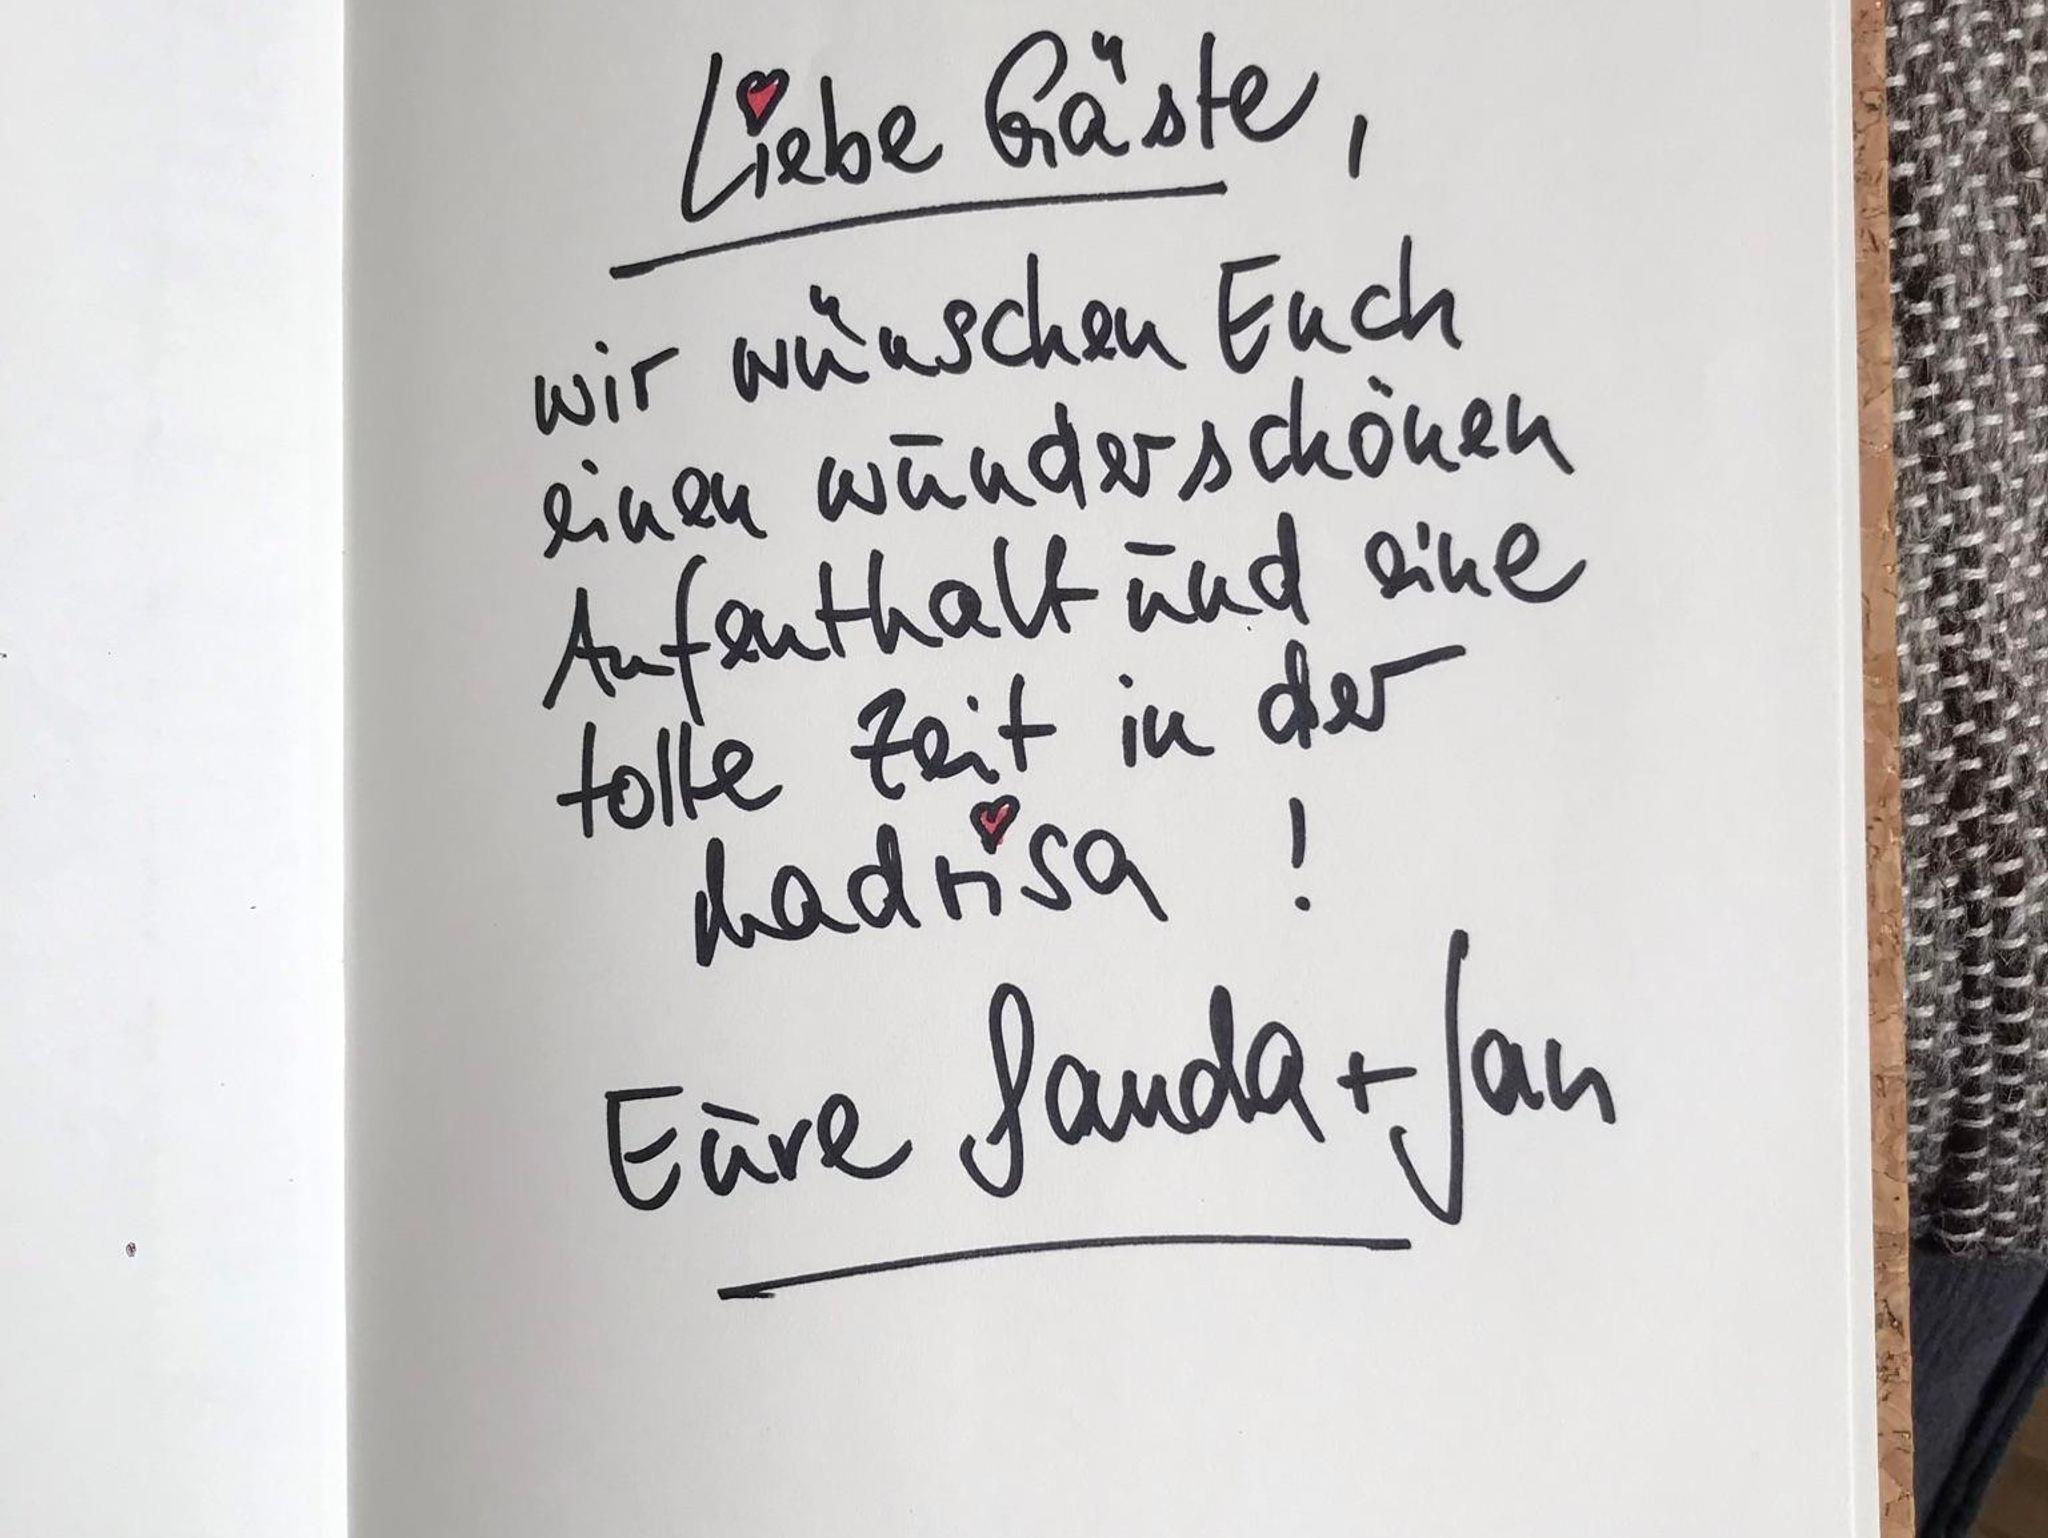 Liebe Gäste,
wir wünschen Euch
einen wunderschönen
Aufenthalt und eine
tolle Zeit in der
Madrisa !
Eure Sanda + Jan